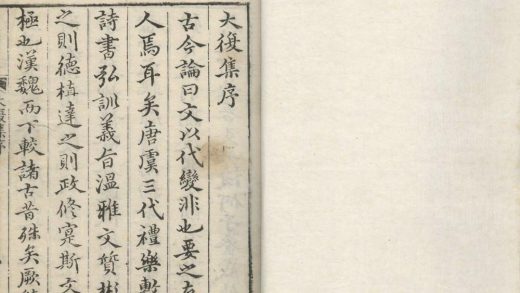 大復集序
古今論曰文以代變非也要之
人焉耳矣唐虞三代禮樂
詩書弘訓義旨溫雅文質彬
之則德植達之則政修寔斯文
極也漢魏而下較諸古昔殊矣厥